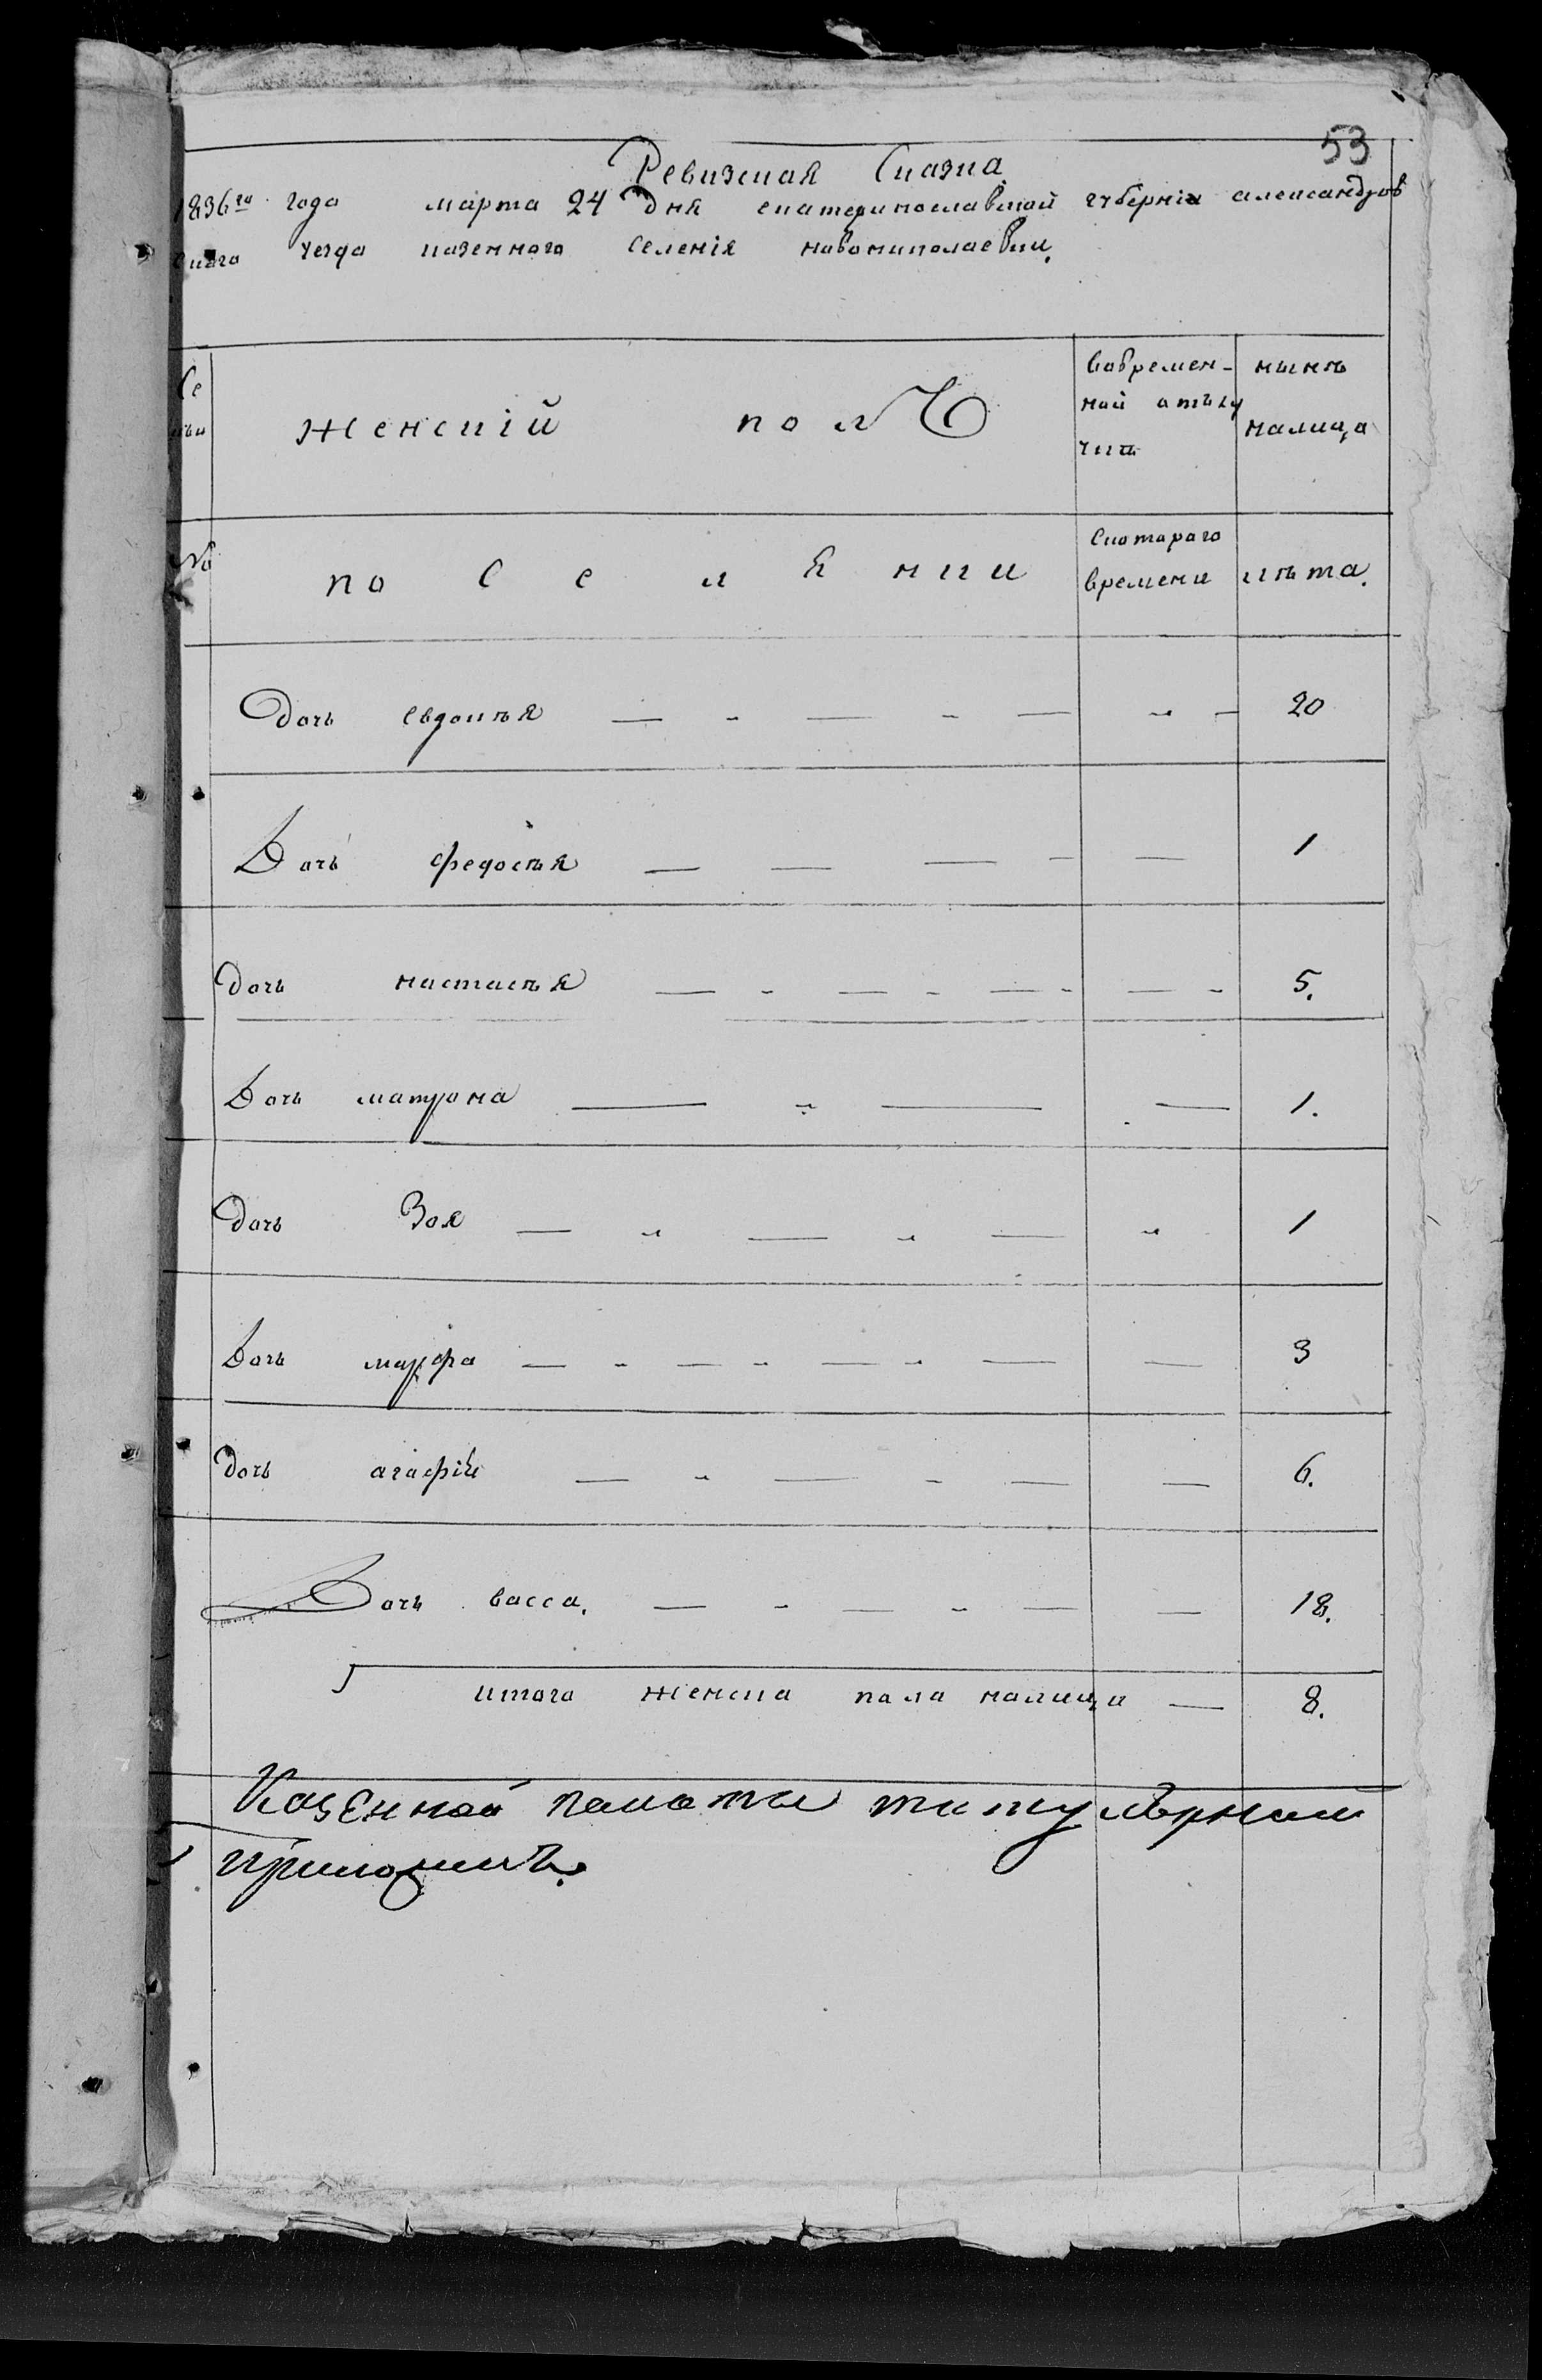 53
Ревизская Сказка
1836го года марта 24 дня екатеринославской губерніи александров
скаго уезда казенного селенія новониколаевки.
Се
мьи
женскій полЪ
вовремен-
ной отълу
чкъ
нынъ
налицо
№
поселянки
скотораго
времени
лъта.
Дочь евдокъя — - — - — - — 20
Дочь федосъя — — — - — 1
дочь настасъя — - — - — - — - 5.
Дочь матрона — - — — 1.
дочь Зоя — - — - — - 1
Дочь марфа — - — - — - — — 3
дочь агафія — - — - — — 6.
Дочь васса. — - — - — — 18.
итого женска пола налицо — 8.
Козенной полоты титулѣрный
приложилъ.